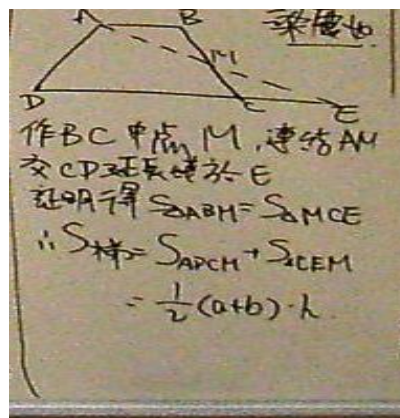 A B
M
D C E
作BC中点M,连结AM
交CD延长线于E
证明得 S△ABM=S△MCE
∴S梯=SADCM+S△CEM
=1/2(a+b)·h